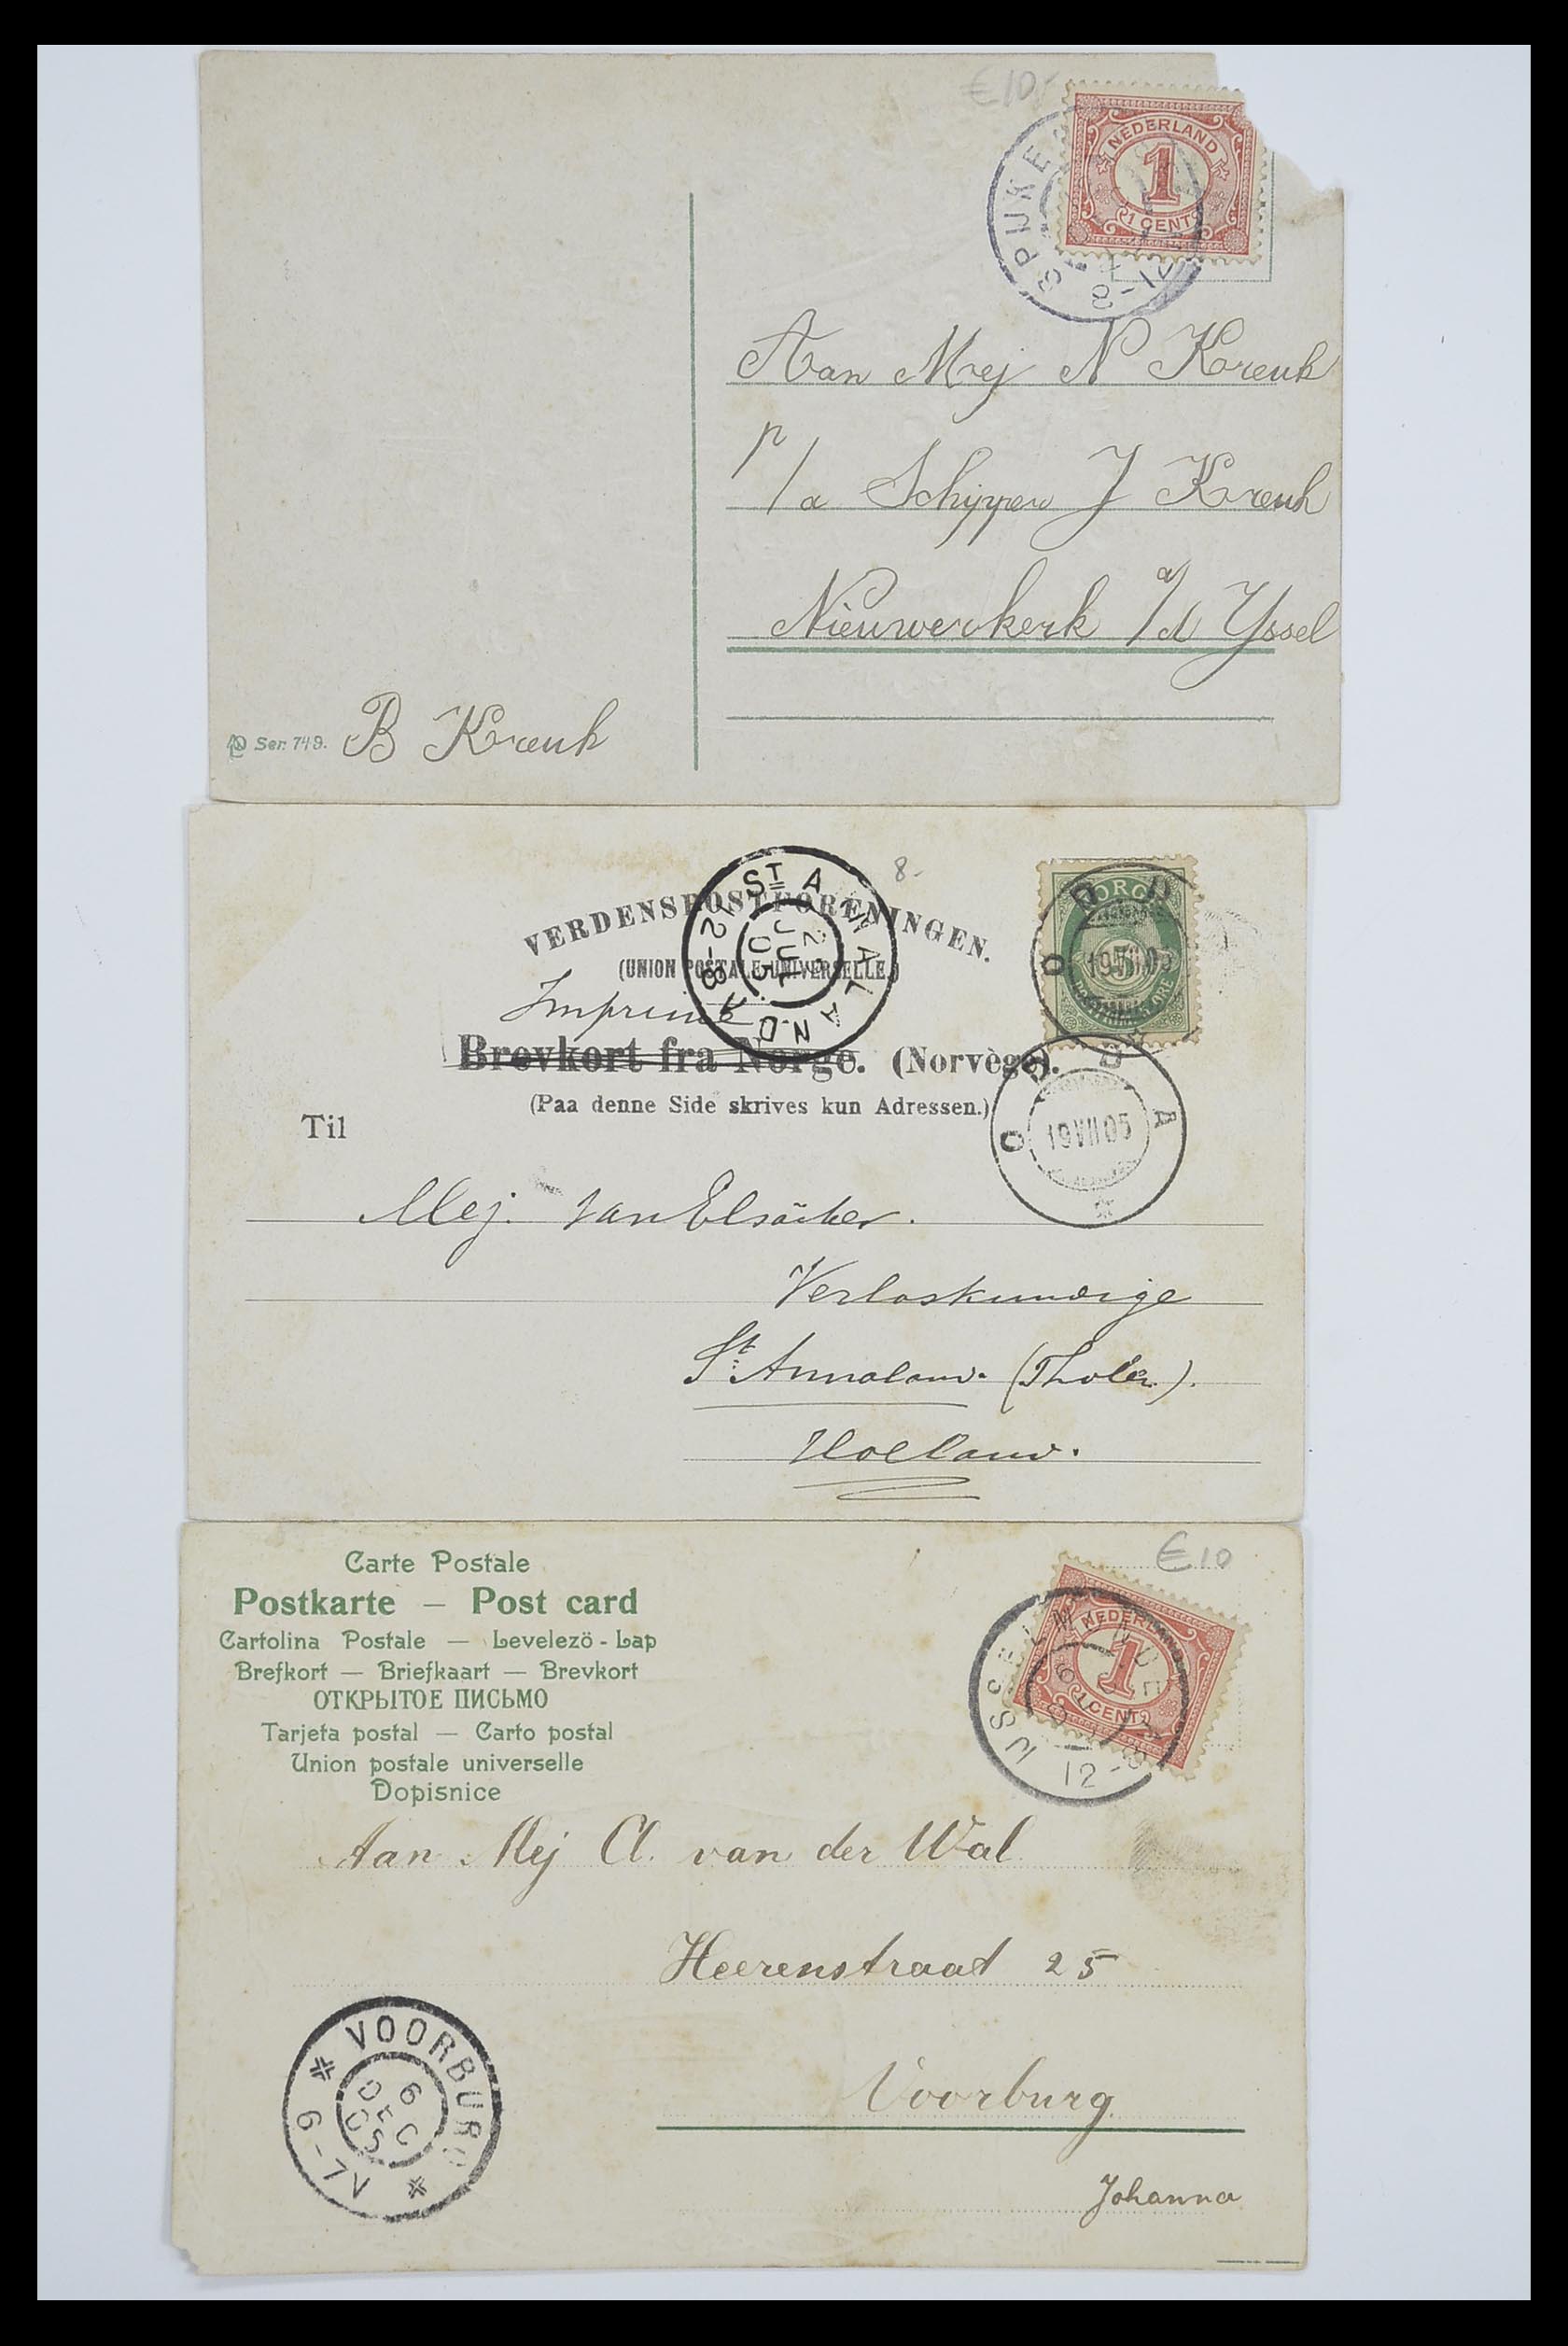 €10,-
NEDERLAND
1
1 CENT
SPIJKE
Aan Mej N Kreuk
p/a Schipper J Kreuk
Nieuwerkerk a/d Yssel
Ser. 749. B Kreuk
8-
VERDENSPOSTFORENINGEN.
(UNION POSTALE UNIVERSELLE.)
ST ANNALAND
JUL
05
12-8
ODDA
19 VII 05
Imprimé
Brevkort fra Norge. (Norvège).
(Paa denne Side skrives kun Adressen.)
ODDA
19 VII 05
Til
Mej. van Elsäcker.
Verloskundige
St. Annaland. (Tholen).
Holland.
€10
Carte Postale
Postkarte — Post card
Cartolina Postale — Levelező-Lap
Brefkort — Briefkaart — Brevkort
ОТКРЫТОЕ ПИСЬМО
Tarjeta postal — Carto postal
Union postale universelle
Dopisnice
NEDERL
1
1 CENT
IJSSELMUNDE
12-8
Aan Mej Cl. van der Wal
Heerenstraat 25
VOORBURG
6
DEC
05
6-7V
Voorburg.
Johanna